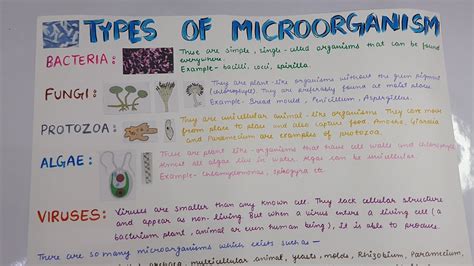 TYPES OF MICROORGANISM
BACTERIA:
These are simple, single-celled organisms that can be found
everywhere.
Example- bacilli, cocci, spirilla.
FUNGI:
They are plant-like organisms without the green pigment
(chlorophyll). They are preferably found at moist places.
Example- Bread mould, Penicillium, Aspergillus.
PROTOZOA:
They are unicellular animal-like organisms. They can move
from place to place and also capture food. Amoeba, Giardia
and Paramecium are examples of protozoa.
ALGAE:
These are plant like-organisms that have cell walls and chlorophyll
Almost all algae live in water. Algae can be unicellular.
Example- Chlamydomonas, Spirogyra etc.
VIRUSES:
Viruses are smaller than any known cell. They lack cellular structure
and appear as non-living. But when a virus enters a living cell (a
bacterium plant, animal or even human being), it is able to produce.
There are so many microorganisms which exists such as-
multicellular animal, yeasts, molds, Rhizobium, Paramecium,